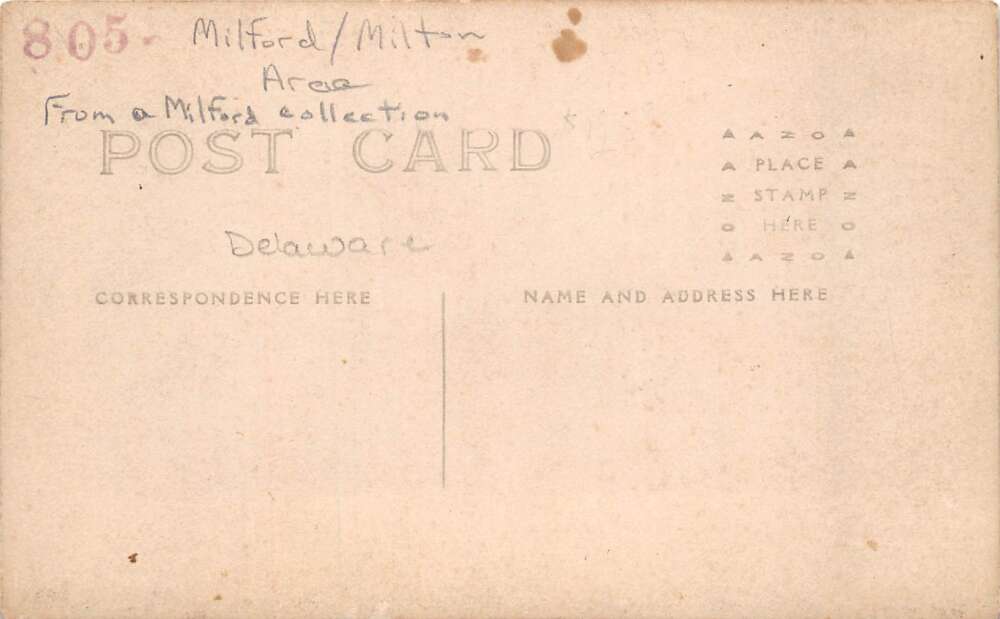 805
Milford/Milton
Area
From a Milford collection
POST CARD
AZO
PLACE
STAMP
HERE
AZO
Delaware
CORRESPONDENCE HERE
NAME AND ADDRESS HERE